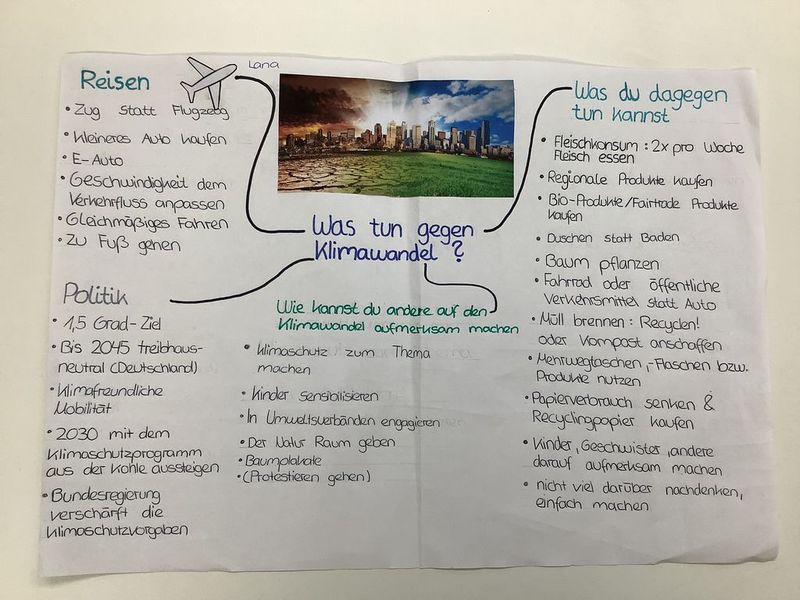 Lana
Reisen
• Zug statt Flugzeug
• Kleineres Auto kaufen
• E-Auto
• Geschwindigkeit dem
Verkehrsfluss anpassen
• Gleichmäßiges Fahren
• Zu Fuß gehen
Politik
• 1,5 Grad-Ziel
• Bis 2045 treibhaus-
neutral (Deutschland)
• Klimafreundliche
Mobilität
• 2030 mit dem
Klimaschutzprogramm
aus der Kohle aussteigen
• Bundesregierung
verschärft die
Klimaschutzvorgaben
Was tun gegen
Klimawandel?
Wie kannst du andere auf den
Klimawandel aufmerksam machen
• Klimaschutz zum Thema
machen
• Kinder sensibilisieren
• In Umweltsverbänden engagieren
• Der Natur Raum geben
• Baumplakate
• (Protestieren gehen)
Was du dagegen
tun kannst
• Fleischkonsum: 2x pro Woche
Fleisch essen
• Regionale Produkte kaufen
• Bio-Produkte/Fairtrade Produkte
kaufen
• Duschen statt Baden
• Baum pflanzen
• Fahrrad oder öffentliche
Verkehrsmittel statt Auto
• Müll brennen: Recyclen!
oder anschaffen
• Mehrwegtaschen, -Flaschen bzw.
Produkte nutzen
• Papierverbrauch senken &
Recyclingpapier kaufen
• Kinder, Geschwister, andere
darauf aufmerksam machen
• nicht viel darüber nachdenken,
einfach machen